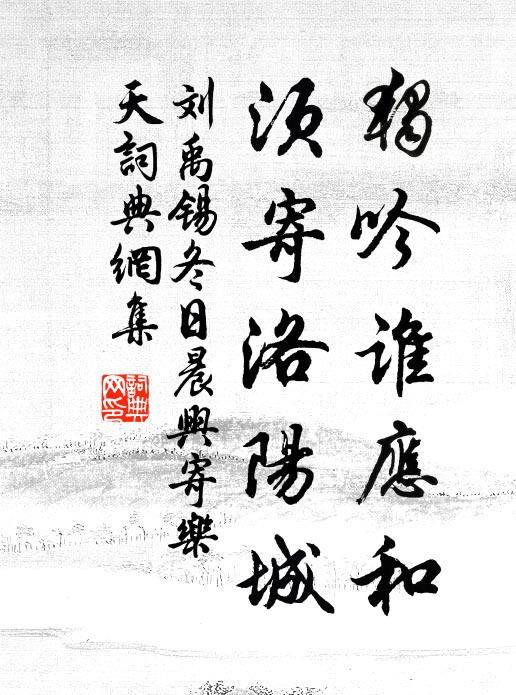 獨吟誰應和
須寄洛陽城
刘禹锡冬日晨興寄樂
天詞典網集
詞典
网印